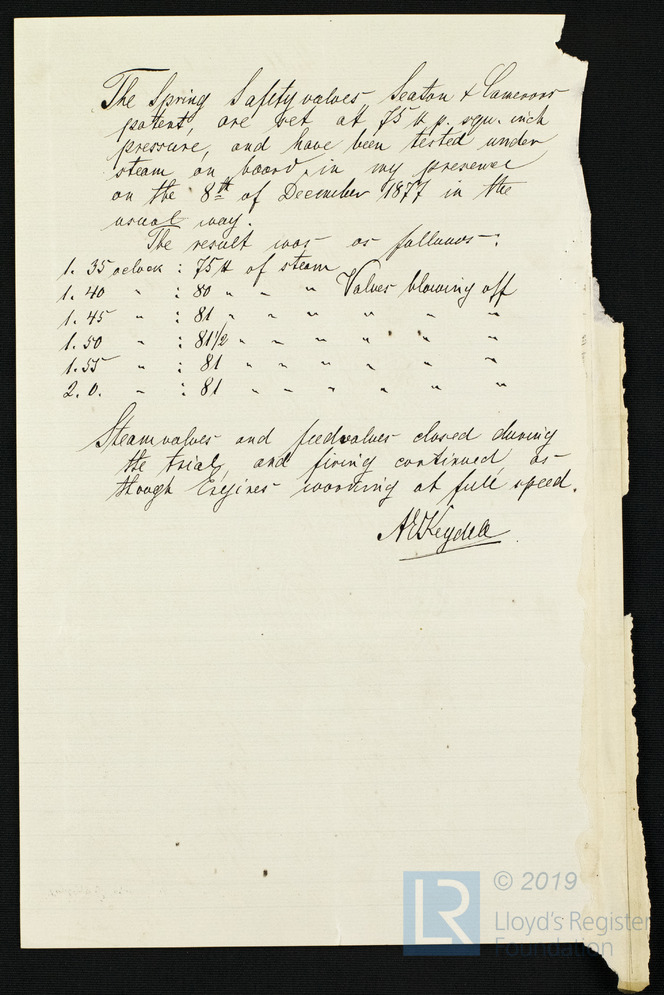 The Spring Safetyvalves Seaton & Camerons
patent, are set at 75 lb p. squ. inch
pressure, and have been tested under
steam on board in my presence
on the 8th of December 1877 in the
usual way.
The result was as follows:
1. 35 oclock : 75 lb of steam
1. 40 " : 80 " " " Valves blowing off
1. 45 " : 81 " " " " " "
1. 50 " : 81 1/2 " " " " " "
1. 55 " : 81 " " " " " "
2. 0. " : 81 " " " " " "
Steamvalves and feedvalves closed during
the trial, and firing continued as
though Engines working at full speed.
© 2019
LR
Lloyd's Register
Foundation